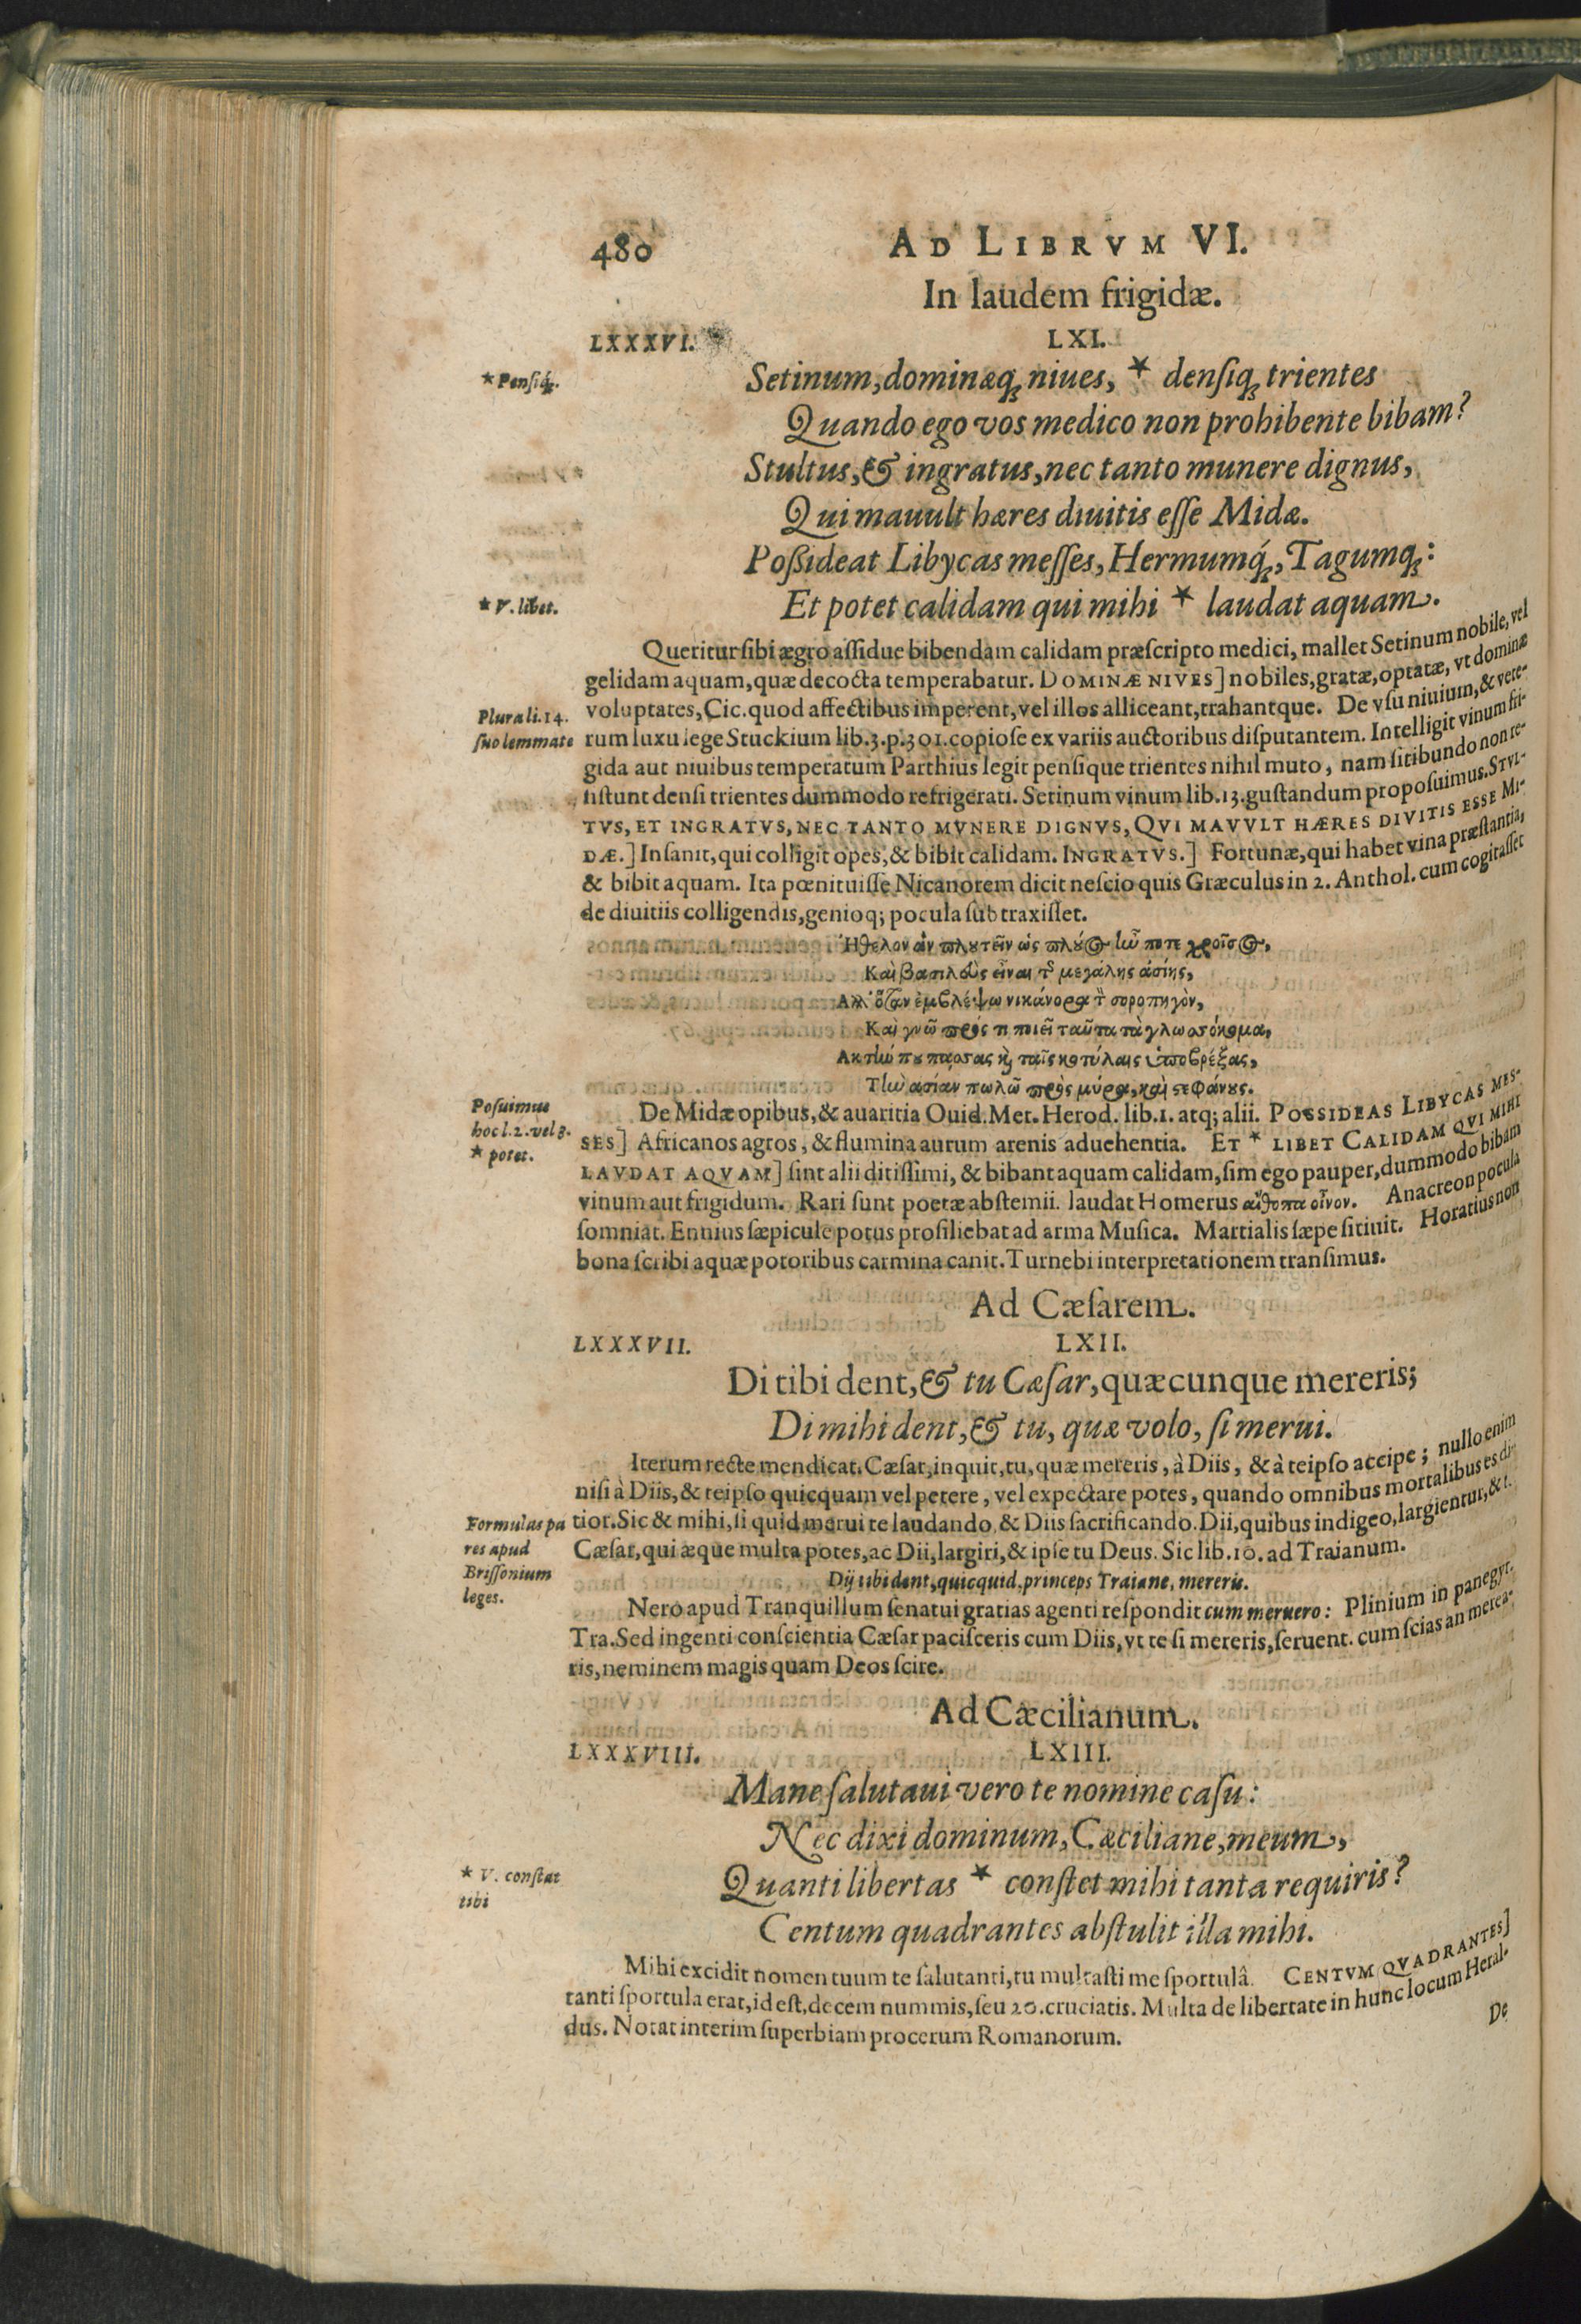 480
AD LIBRVM VI.
In laudem frigidæ.
LXXXVI.
LXI.
*Pensiq́;.
Setinum, dominæq; niues, * densiq; trientes
Quando ego vos medico non prohibente bibam?
Stultus, & ingratus, nec tanto munere dignus,
Qui mauult hæres diuitis esse Midæ.
Possideat Libycas messes, Hermumq́;, Tagumq;:
* V. libet.
Et potet calidam qui mihi * laudat aquam.
Queritur sibi ægro assidue bibendam calidam præscripto medici, mallet Setinum nobile, vel
gelidam aquam, quæ decocta temperabatur. DOMINÆ NIVES] nobiles, gratæ, optatæ, vt dominæ
Plura li. 14.
suo lemmate
voluptates, Cic. quod affectibus imperent, vel illos alliceant, trahantque. De vsu niuium, & vete-
rum luxu lege Stuckium lib. 3. p. 301. copiose ex variis auctoribus disputantem. Intelligit vinum fri-
gida aut niuibus temperatum Parthius legit pensique trientes nihil muto, nam sitibundo non re-
sistunt densi trientes dummodo refrigerati. Setinum vinum lib. 13. gustandum proposuimus. STVL-
TVS, ET INGRATVS, NEC TANTO MVNERE DIGNVS, QVI MAVVLT HÆRES DIVITIS ESSE MI-
DÆ.] Insanit, qui colligit opes, & bibit calidam. INGRATVS.] Fortunæ, qui habet vina præstantia,
& bibit aquam. Ita pœnituisse Nicanorem dicit nescio quis Græculus in 2. Anthol. cum cogitasset
de diuitiis colligendis, genioq; pocula subtraxisset.
Ἤθελον ἂν πλουτεῖν ὡς πλούσιος ἦν ποτε χροῖσος,
Καὶ βασιλεὺς εἶναι τῆς μεγάλης ἀσίης,
Ἀλλ' ὅταν ἐμβλέψω νικάνορα τὸν σοροπηγὸν,
Καὶ γνῶ πρός τι ποιεῖ ταῦτα τὰ γλωσσόκομα,
Ἀκτίω που πάσσας καὶ ταῖς κοτύλαις ὑποβρέξας,
Τὴν ἀσίαν πωλῶ πρὸς μύρα, καὶ στεφάνους.
Posuimus
hoc l. 2. vel 3.
* potet.
De Midæ opibus, & auaritia Ouid. Met. Herod. lib. 1. atq; alii. POSSIDEAS LIBYCAS MES-
SES] Africanos agros, & flumina aurum arenis aduehentia. ET * LIBET CALIDAM QVI MIHI
LAVDAT AQVAM] sint alii ditissimi, & bibant aquam calidam, sim ego pauper, dummodo bibam
vinum aut frigidum. Rari sunt poetæ abstemii. laudat Homerus αἴθοπα οἶνον. Anacreon pocula
somniat. Ennius sæpicule potus prosiliebat ad arma Musica. Martialis sæpe sitiuit. Horatius non
bona scribi aquæ potoribus carmina canit. Turnebi interpretationem transimus.
Ad Cæsarem.
LXXXVII.
LXII.
Di tibi dent, & tu Cæsar, quæcunque mereris;
Di mihi dent, & tu, quæ volo, si merui.
Iterum recte mendicat. Cæsar, inquit, tu, quæ mereris, à Diis, & à teipso accipe; nullo enim
nisi à Diis, & teipso quicquam vel petere, vel expectare potes, quando omnibus mortalibus es di-
Formulas pa
res apud
Brissonium
leges.
tior. Sic & mihi, si quid merui te laudando & Diis sacrificando. Dii, quibus indigeo, largientur, & t.
Cæsar, qui æque multa potes, ac Dii, largiri, & ipse tu Deus. Sic lib. 10. ad Traianum.
Dij tibi dent, quicquid, princeps Traiane, mereris.
Nero apud Tranquillum senatui gratias agenti respondit cum meruero: Plinium in panegyr.
Tra. Sed ingenti conscientia Cæsar pacisceris cum Diis, vt te si mereris, seruent. cum scias an merea-
ris, neminem magis quam Deos scire.
Ad Cæcilianum.
LXXXVIII.
LXIII.
Mane salutaui vero te nomine casu:
Nec dixi dominum, Cæciliane, meum,
* V. constat
tibi
Quanti libertas * constet mihi tanta requiris?
Centum quadrantes abstulit illa mihi.
Mihi excidit nomen tuum te salutanti, tu multasti me sportulâ. CENTVM QVADRANTES]
tanti sportula erat, id est, decem nummis, seu 20. cruciatis. Multa de libertate in hunc locum Heral-
dus. Notat interim superbiam procerum Romanorum.
De